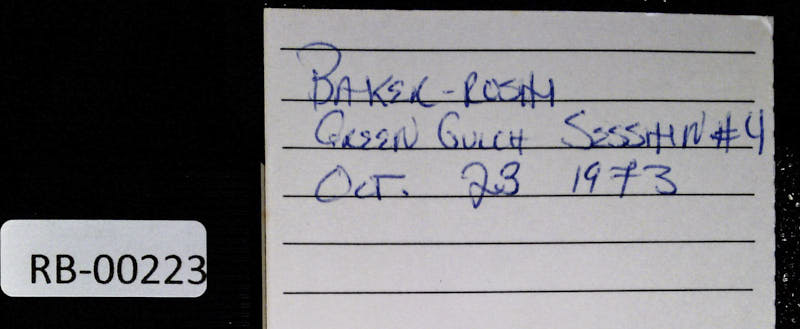 BAKER-ROSHI
GREEN GULCH SESSHIN #4
OCT. 23 1973
RB-00223